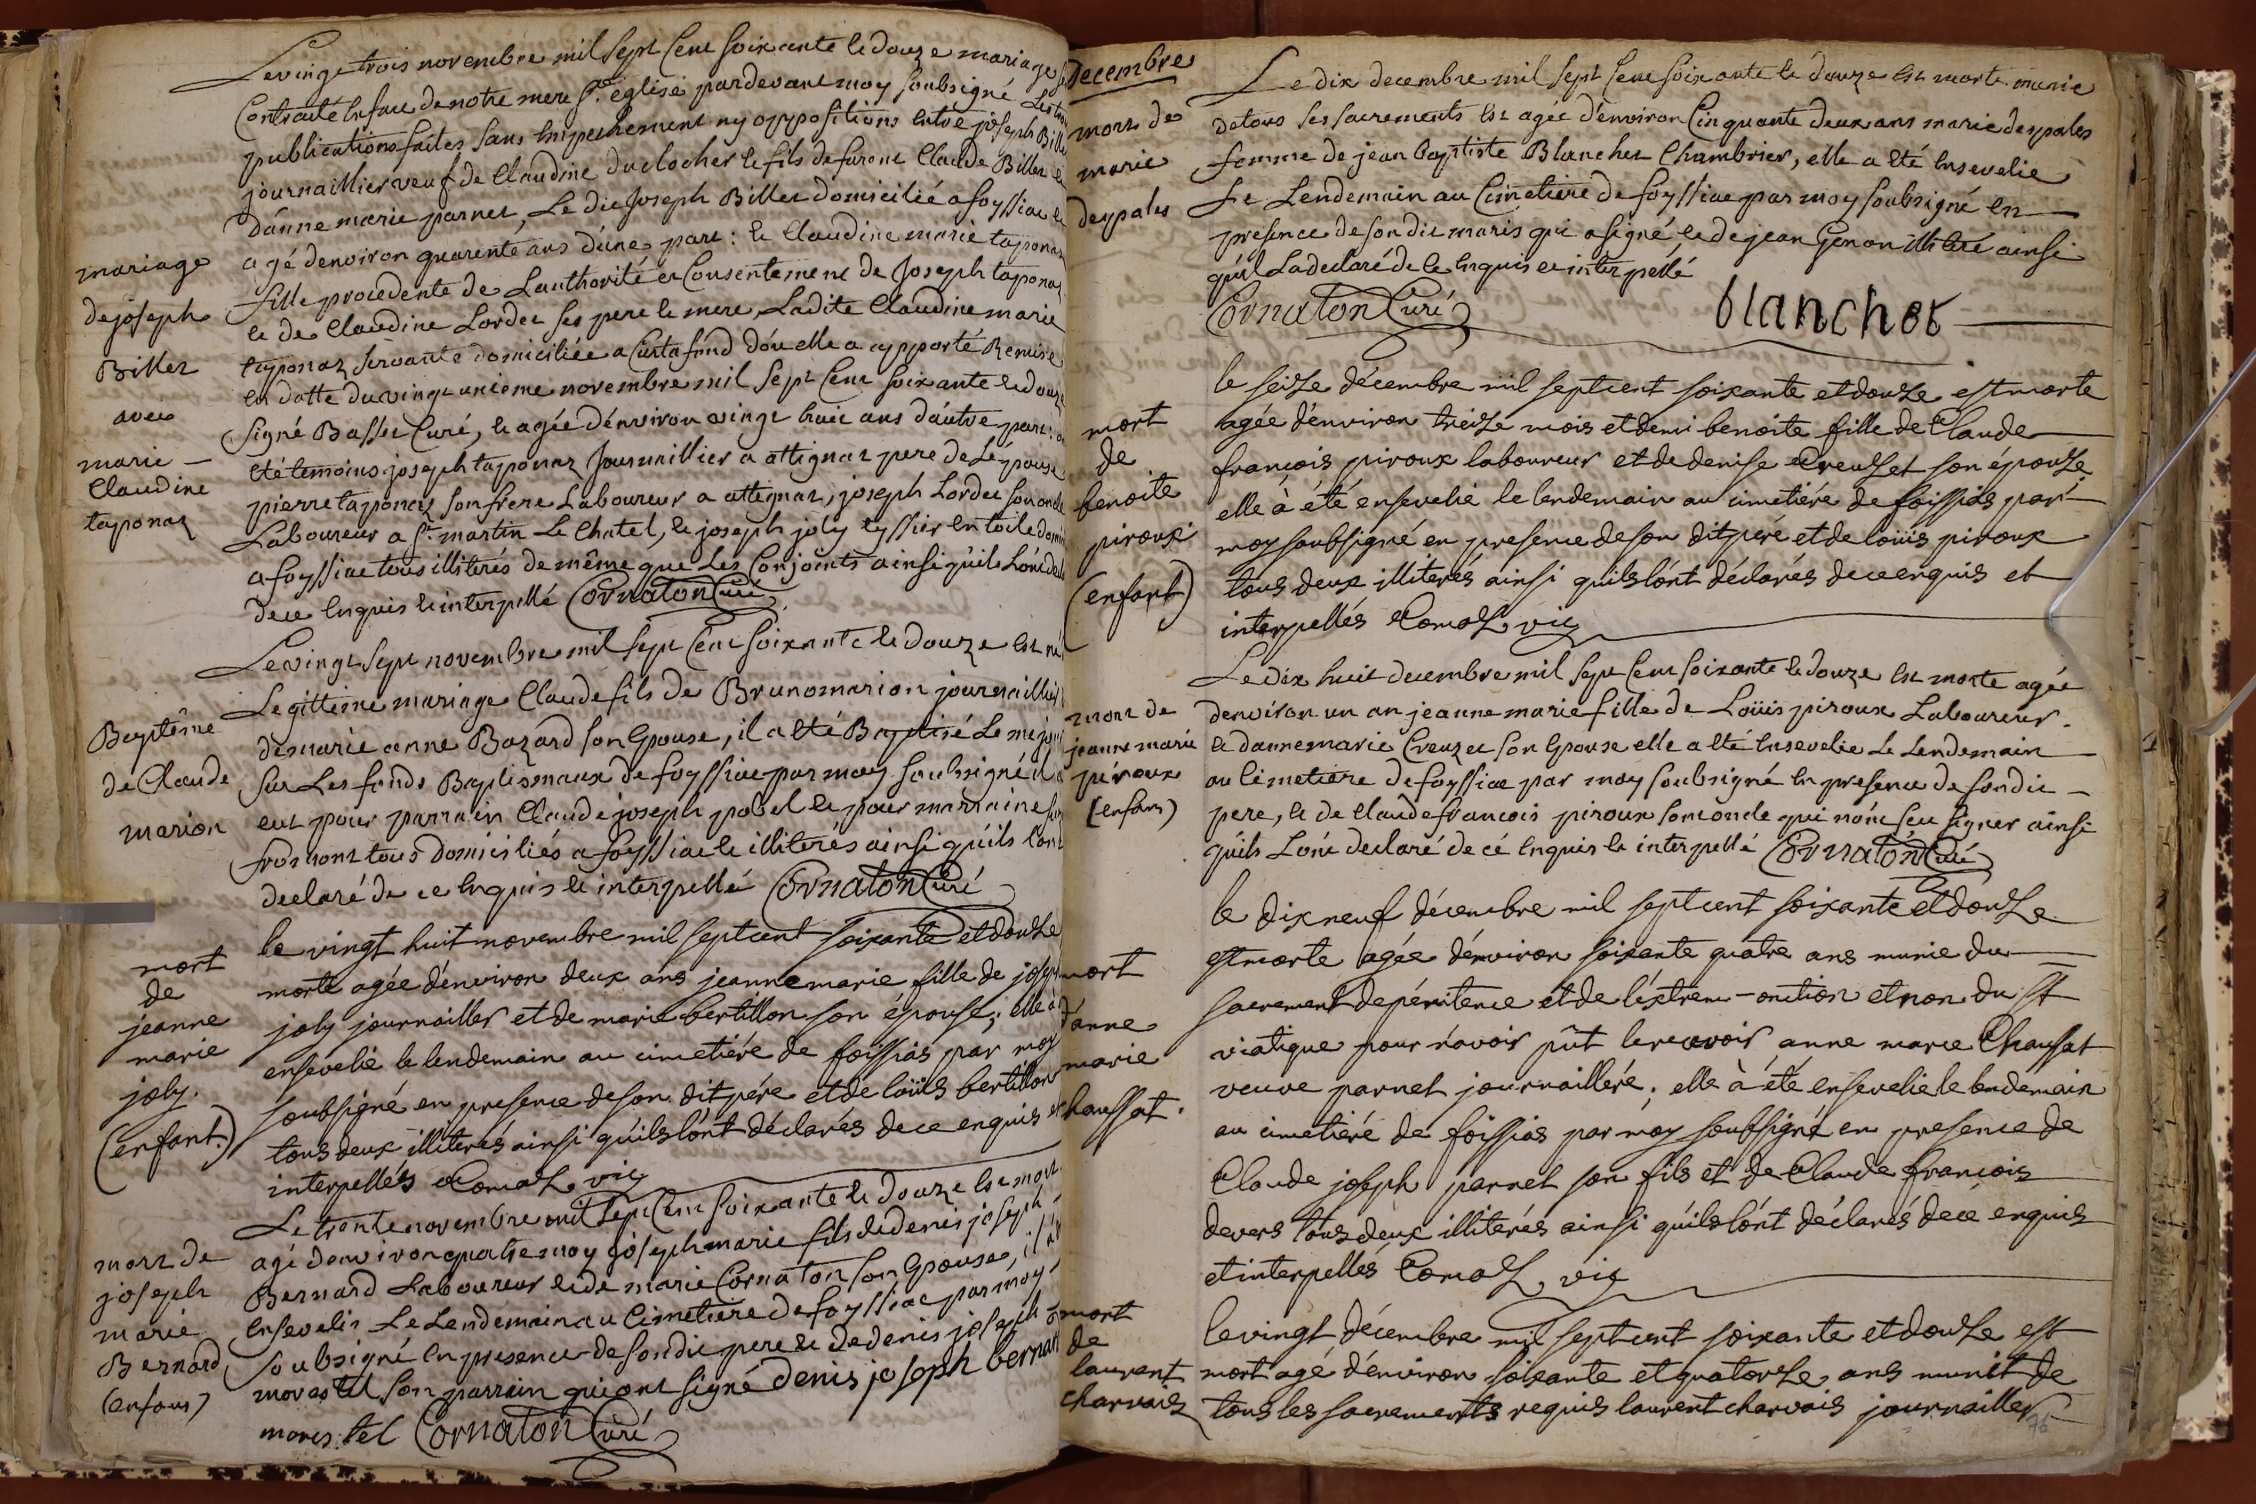 Le vingt trois novembre mil sept cent soixante et douze mariage
Contracté en face de notre mere Ste église pardevant moy soubsigné Les
publications faites sans empechement ny oppositions entre joseph Billet
journaillier veuf de Claudine duclocher et fils de furent Claude Billet et
dánne marie parnet, Le dit Joseph Billet domicilié a foyssiac et
agé denviron quarente ans dúne part : et Claudine marie taponaz
fille procedente de Lauthorité et Consentement de Joseph taponaz
et de Claudine Lordet ses pere et mere, Ladite Claudine marie
taponaz servante domiciliée a Curtafond dóu elle a apporté Remise
en datte du vingt unieme novembre mil sept cent soixante et douze
signé Basset Curé, et agée dénviron vingt huit ans dáutre part :
été temoins joseph taponaz Journaillier a attignaz pere de Lépouse
pierre taponaz son frere Laboureur a attignaz, joseph Lordet son oncle
Laboureur a St martin Le Chatel, et joseph joly tyssier en toile
a foyssiac tous illiterés de même que Les Conjoints ainsi qúils Lónt
dece enquis et interpellé Cornaton Curé
mariage
de joseph
Billet
avec
marie
Claudine
taponaz
Le vingt sept novembre mil sept cent soixante et douze est né
Legittime mariage Claude fils de Bruno marion journaillier
de marie anne Bozard son Epouse, il a été Baptisé Le même jour
sur Les fonds Baptismaux de foyssiac par moy soubsigné il a
eut pour parrain Claude joseph pobel et pour marraine
fromont tous domiciliés a foyssiac et illiterés ainsi qúils lónt
declaré de ce enquis et interpellé Cornaton Curé
Baptême
de Claude
marion
le vingt huit novembre mil sept cent soixante et douze
morte agée dénviron deux ans jeanne marie fille de joseph
joly journailler et de marie bertillon son épouse ; elle à
ensevelie le lendemain au cimetiére de foissias par moy
soubsigné en presence de son dit pére et de loüis bertillon
tous deux illiterés ainsi quils lónt déclarés de ce enquis et
interpellés Comaz vic
mort
de
jeanne
marie
joly.
(enfant.)
Le trente novembre mil sept cent soixante et douze est mort
agé denviron quatre moy joseph marie fils de denis joseph
Bernard Laboureur et de marie Cornaton son Epouse, il
Ensevelis Le Lendemain au Cimetiere de foyssiac par moy
soubsigné en presence de son dit pere et de denis joseph
morestel son parrain qui ont signé denis joseph bernard
morestel Cornaton Curé
mort de
joseph
marie
Bernard
(enfant)
decembre
Le dix decembre mil sept cent soixante et douze est morte munie
de tous ses sacrements est agée dénviron Cinquante deux ans marie despales
femme de jean baptiste Blanchet Chambrier, elle a été Ensevelie
Le Lendemain au Cimetiere de foyssiac par moy soubsigné en
presence de son dit maris qui a signé et de jean Genon illiteré ainsi
qúil La declaré de ce enquis et interpellé
Cornaton Curé blanchet
mort de
marie
despales
le seize décembre mil sept cent soixante et douze est morte
agée dénviron treize mois et demi benoite fille de Claude
françois piroux laboureur et de denise Creuzet son épouse
elle à été ensevelie le lendemain au cimetiére de foissias par
moy soubsigné en presence de son dit pere et de loüis piroux
tous deux illiterés ainsi quils lónt déclarés de ce enquis et
interpellés Comaz vic
mort
de
benoite
piroux
(enfant)
Le dix huit decembre mil sept cent soixante et douze est morte agée
denviron un an jeanne marie fille de Loüis piroux Laboureur
et dánne marie Creuzet son Epouse elle a été Ensevelie Le Lendemain
au Cimetiere de foyssiac par moy soubsigné en presence de son dit
pere, et de Claude francois piroux son oncle qui nónt sçu signer ainsi
qúils Lónt declaré de cé enquis et interpellé Cornaton Curé
mort de
jeanne marie
piroux
(enfant)
le dix neuf décembre mil sept cent soixante et douze
est morte agée dénviron soixante quatre ans munie du
sacrement de pénitence et de léxtrem-onction et non du st
viatique pour n'avoir pût le recevoir anne marie Chaussat
veuve parnet journailleré ; elle à été ensevelie le lendemain
au cimetiéré de foissias par moy soubsigné en presence de
Claude joseph parnet son fils et de Claude françois
devers tous deux illiterés ainsi qúils lónt déclarés de cé enquis
et interpellés Comaz vic
mort
d'anne
marie
chaussat.
le vingt décembre mil sept cent soixante et douze est
mort agé dénviron soixante et quatorze ans munit de
tous les sacrements requis laurent charvais journailler
mort
de
laurent
charvais
76